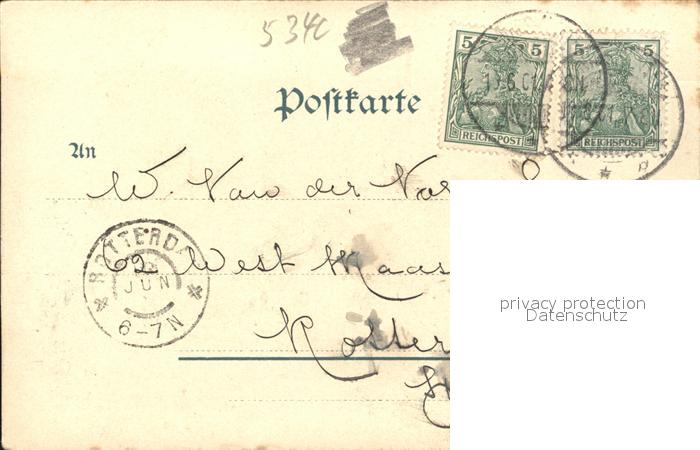 534c
Postkarte
5 5 5 5
REICHSPOST REICHSPOST
An
W. Van der
62 West Maas
ROTTERDA
JUN
6-7N
Rotter
privacy protection
Datenschutz